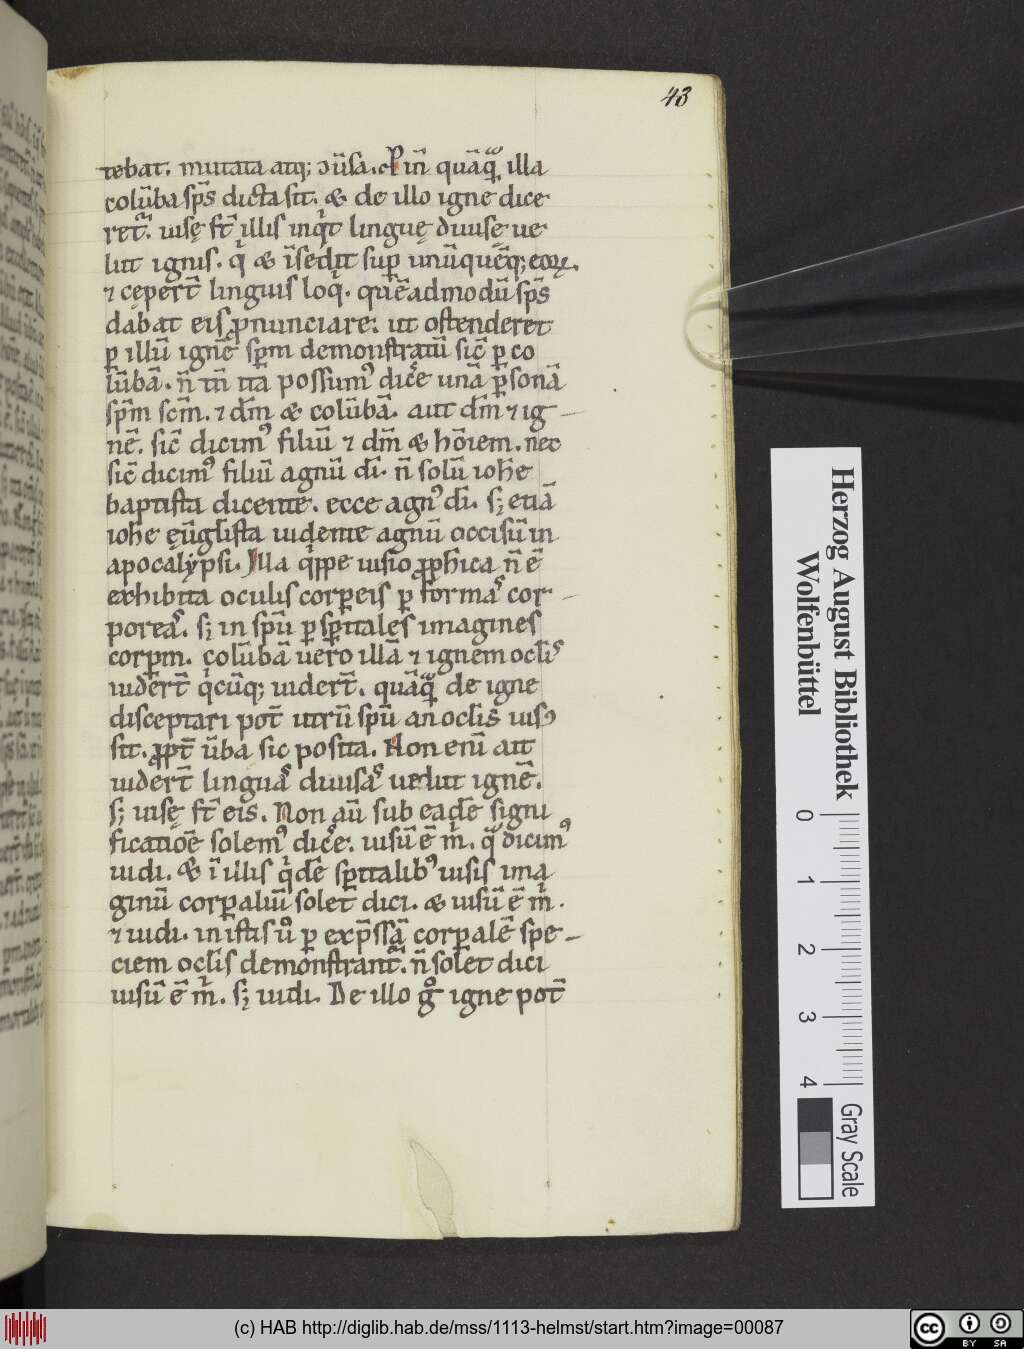 43
tebat. mutata atq; ↄûsa. P in̄ quāq̄ illa
colūba sp̄s dicta sit. & de illo igne dice
ret̄. uisę st̄ illis inqͥt linguę diuisę ue
lut ignis. qͥ & īsedit sup unūquēq; eoꝝ.
⁊ cępert̄ linguis loqͥ. quēadmodū sp̄s
dabat eis ꝓnunciare. ut ostenderet
ꝑ illū ignē sp̄m demonstratū sic̄ ꝑ co
lūbā. n̄ tn̄ ita possumꝰ dice unā ꝑsonā
sp̄m sc̄m. ⁊ dm̄ & colūbā. aut dm̄ ⁊ ig
nē. sic̄ dicimꝰ filiū ⁊ dm̄ & hōiem. nec
sic̄ dicimꝰ filiū agnū di̅. n̄ solū ioh̄e
baptista dicente. ecce agnꝰ di̅. s; etiā
ioh̄e eūglista uidente agnū occisū in
apocalypsi. Illa qͥppe uisio ꝓph̄ica n̄ ē
exhibita oculis corꝑeis ꝑ formas cor
poreas. s; in sp̄u ꝑ sp̄itales imagines
corꝑm. colūbā uero illā ⁊ ignem oclis
uidert̄ qͥcūq; uidert̄. quāq̄ de igne
disceptari pot̄ utrū sp̄u an oclis uisꝰ
sit. ꝓpt̄ ūba sic posita. Non enī ait
uidert̄ linguas diuisas uelut ignē.
s; uisę st̄ eis. Non aū sub eadē signi
ficatiōe solemꝰ dice. uisū ē mͥ. qͣ dicimꝰ
uidi. & ī illis qͥdē sp̄italibꝰ uisis ima
ginū corꝑaliū solet dici. & uisū ē mͥ.
⁊ uidi. in istis uͦ ꝑ exp̄ssā corꝑalē spe
ciem oclis demonstrant̄. n̄ solet dici
uisū ē mͥ. s; uidi. De illo gͦ igne pot̄
Herzog August Bibliothek
Wolfenbüttel
0 1 2 3 4
Gray Scale
(c) HAB http://diglib.hab.de/mss/1113-helmst/start.htm?image=00087
cc BY SA